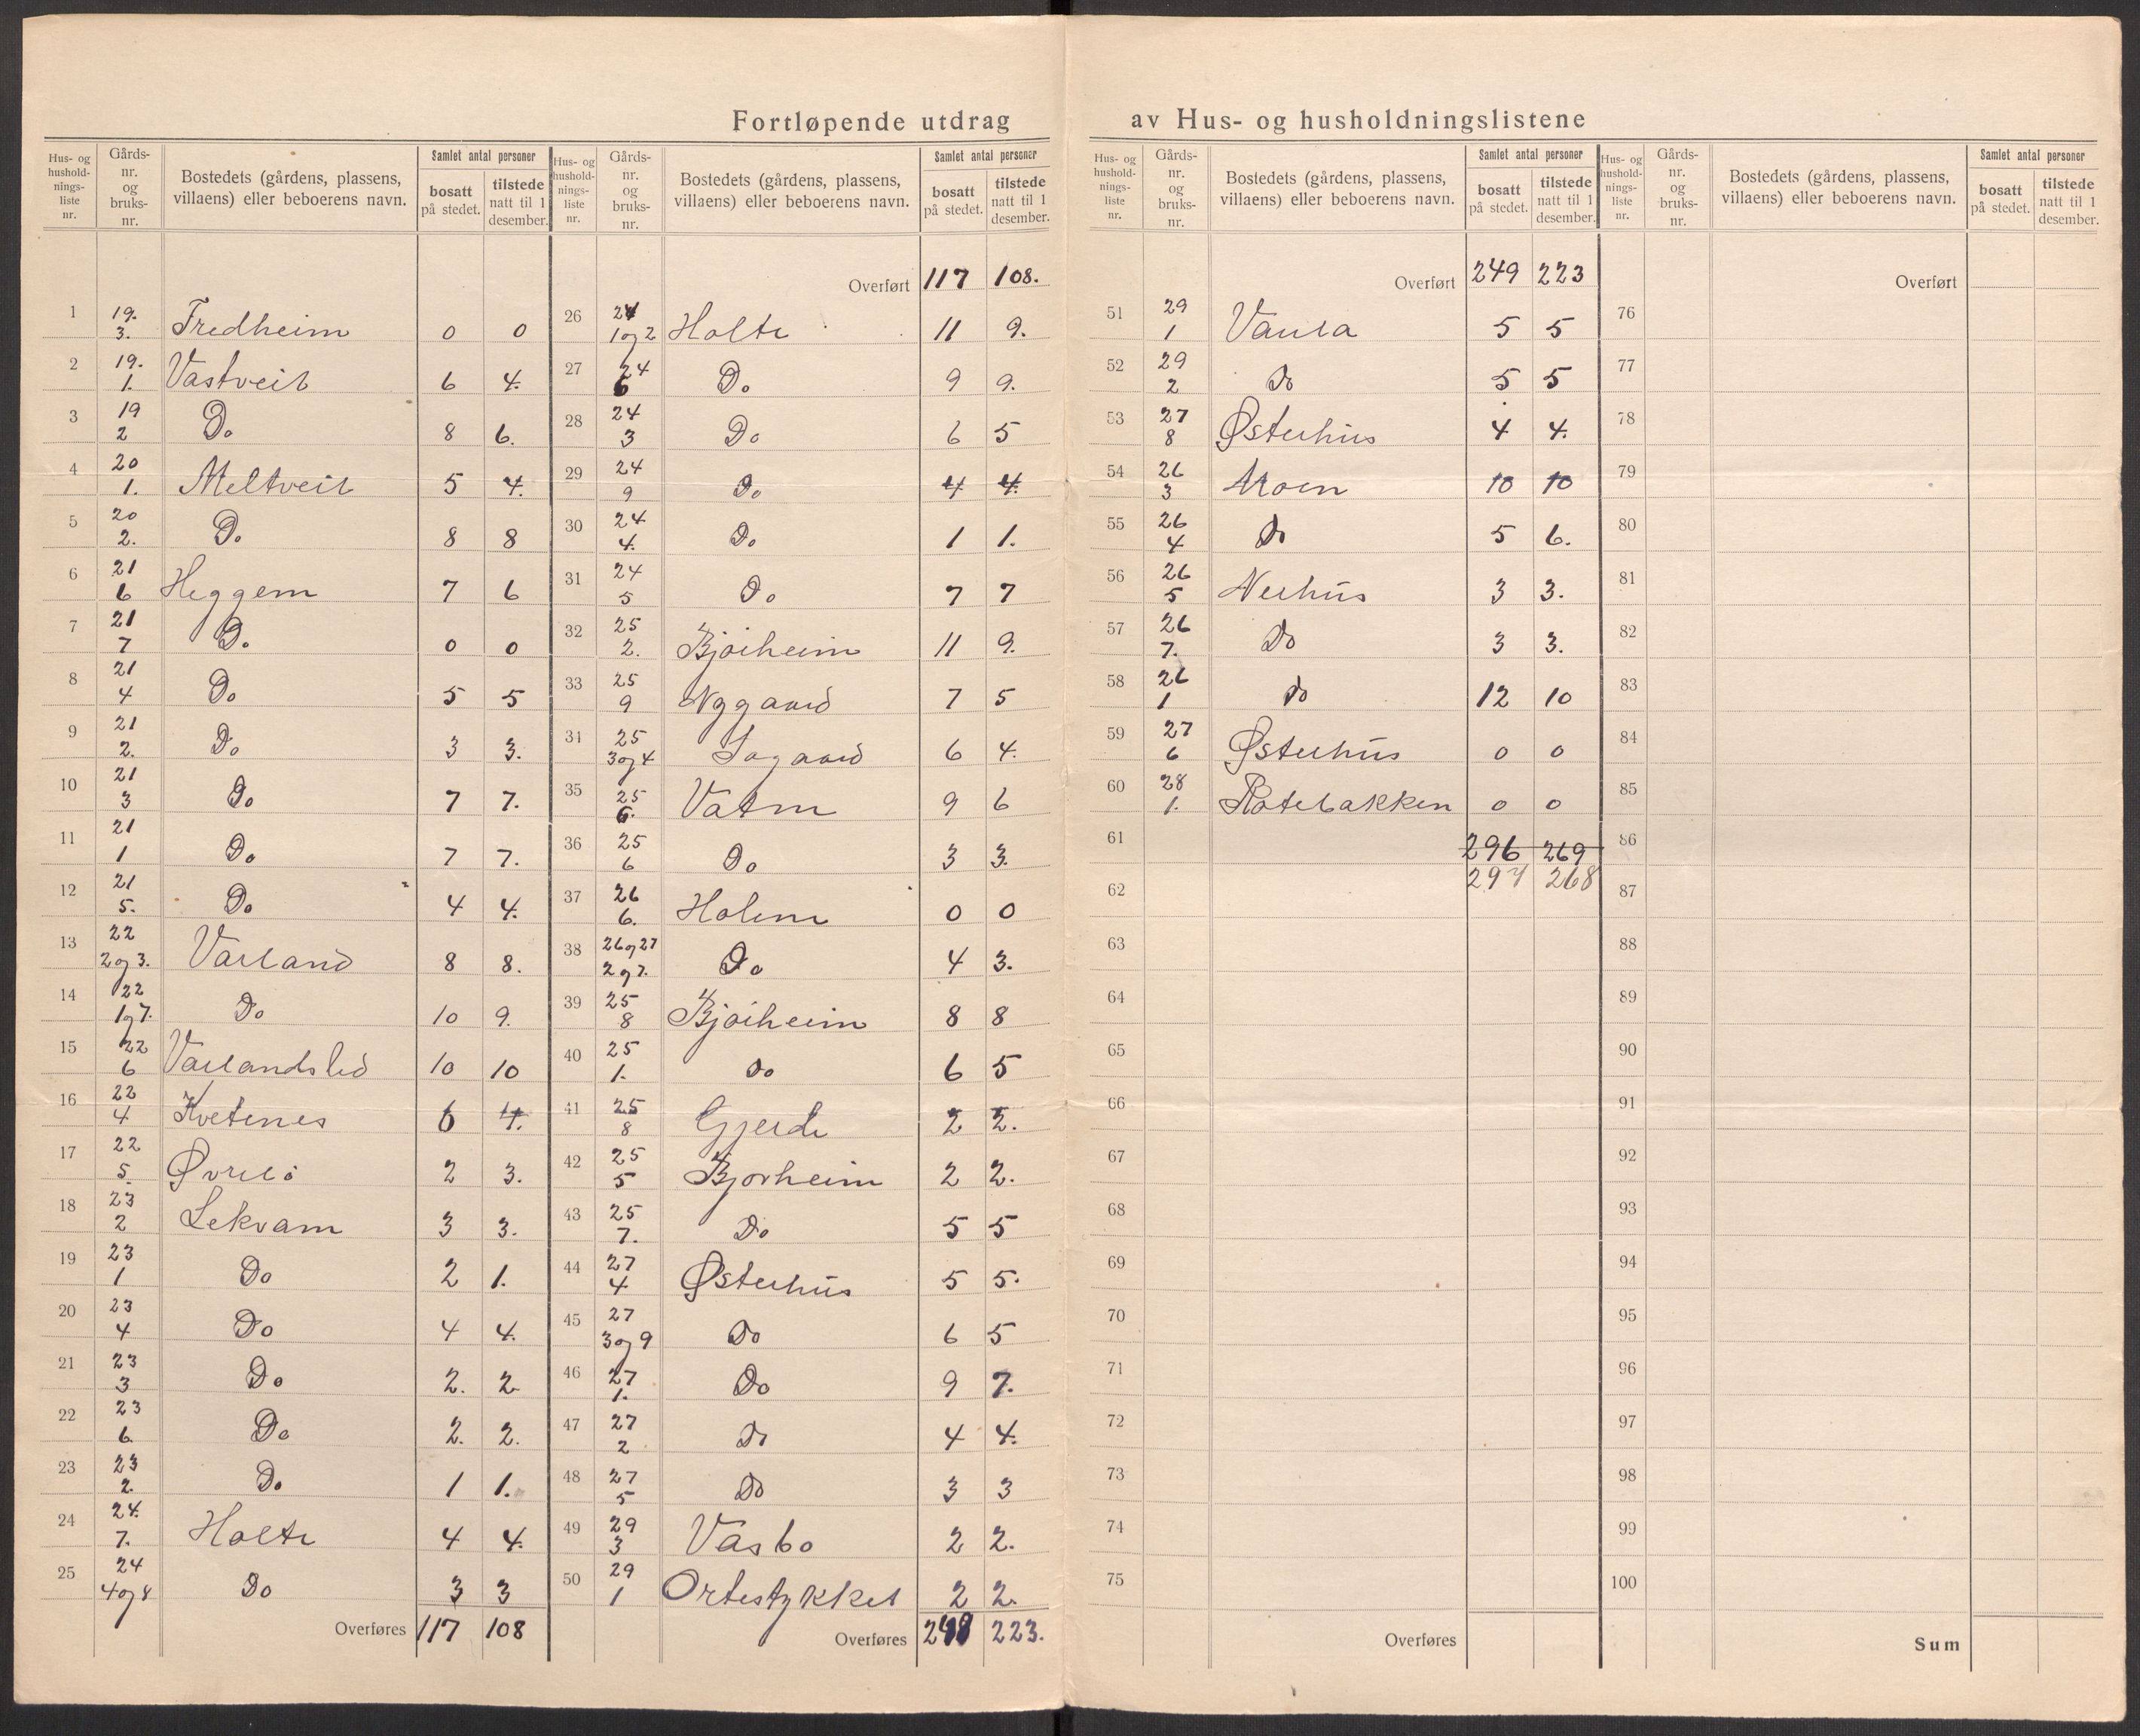 Fortløpende utdrag av Hus- og husholdningslistene
Hus- og hushold-nings-liste nr. Gårds-nr. og bruks-nr. Bostedets (gårdens, plassens, villaens) eller beboerens navn. Samlet antal personer bosatt på stedet. tilstede natt til 1 desember.
1 19. 3. Fredheim 0 0
2 19. 1. Vastveit 6 4.
3 19 2 Do 8 6.
4 20 1. Meltveit 5 4.
5 20 2. Do 8 8
6 21 6 Heggem 7 6
7 21 7 Do. 0 0
8 21 4 Do 5 5
9 21 2. Do 3 3.
10 21 3 Do 7 7.
11 21 1 Do 7 7.
12 21 5. Do 4 4.
13 22 2 og 3. Varland 8 8.
14 22 1 og 7. Do 10 9.
15 22 6 Varlandslid 10 10
16 22 4 Kvetenes 6 4.
17 22 5. 2 3.
18 23 2 Lekvam 3 3.
19 23 1 Do 2 1.
20 23 4 Do 4 4.
21 23 3 Do 2. 2
22 23 6. Do 2. 2.
23 23 2. Do 1 1.
24 24. 7. Holte 4 4.
25 24 4 og 8 Do 3 3
Overføres 117 108
Hus- og hushold-nings-liste nr. Gårds-nr. og bruks-nr. Bostedets (gårdens, plassens, villaens) eller beboerens navn. Samlet antal personer bosatt på stedet. tilstede natt til 1 desember.
Overført 117 108.
26 24 1 og 2 Holte 11 9.
27 24 6 Do 9 9.
28 24 3 Do 6 5
29 24 9 Do 4 4.
30 24 4. Do 1 1.
31 24 5 Do 7 7
32 25 2. Bjorheim 11 9.
33 25 9 Nygaard 7 5
34 25 3 og 4 Sagaard 6 4.
35 25 6. Vatm 9 6
36 25 6 Do 3 3.
37 26 6. Holem 0 0
38 26 og 27 2 og 7. Do 4 3.
39 25 8 Bjorheim 8 8
40 25 1. Do 6 5
41 25 8 Gjerde 2 2.
42 25 5 Bjorheim 2 2.
43 25 7. Do 5 5
44 27 4 Østerhus 5 5.
45 27 3 og 9 Do 6 5
46 27 1. Do 9 7.
47 27 2 Do 4 4.
48 27 5 Do 3 3
49 29 3 Vasbo 2 2.
50 29 1 Ortestykket 2 2.
Overføres 223.
Hus- og hushold-nings-liste nr. Gårds-nr. og bruks-nr. Bostedets (gårdens, plassens, villaens) eller beboerens navn. Samlet antal personer bosatt på stedet. tilstede natt til 1 desember.
Overført 249 223
51 29 1 Vaula 5 5
52 29 2 Do 5 5
53 27 8 Østerhus 4 4.
54 26 3 Moen 10 10
55 26 4 Do 5 6.
56 26 5 Nerhus 3 3.
57 26 7. Do 3 3.
58 26 1 Do 12 10
59 27 6 Østerhus 0 0
60 28 1. Rotebakken 0 0
61 296 269
62 297 268
63
64
65
66
67
68
69
70
71
72
73
74
75
Overføres
Hus- og hushold-nings-liste nr. Gårds-nr. og bruks-nr. Bostedets (gårdens, plassens, villaens) eller beboerens navn. Samlet antal personer bosatt på stedet. tilstede natt til 1 desember.
Overført
76
77
78
79
80
81
82
83
84
85
86
87
88
89
90
91
92
93
94
95
96
97
98
99
100
Sum